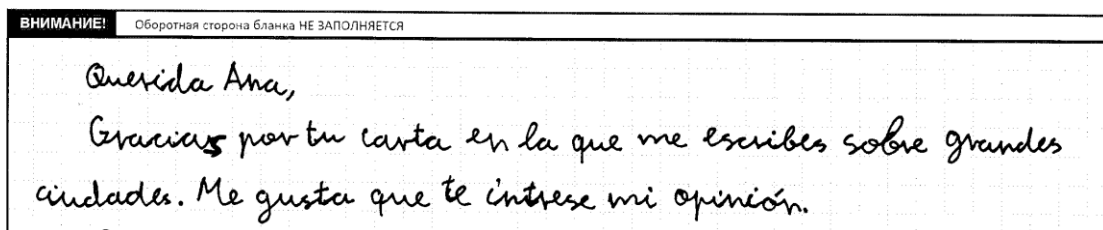 ВНИМАНИЕ! Оборотная сторона бланка НЕ ЗАПОЛНЯЕТСЯ
Querida Ana,
Gracias por tu carta en la que me escribes sobre grandes
ciudades. Me gusta que te intrese mi opinión.